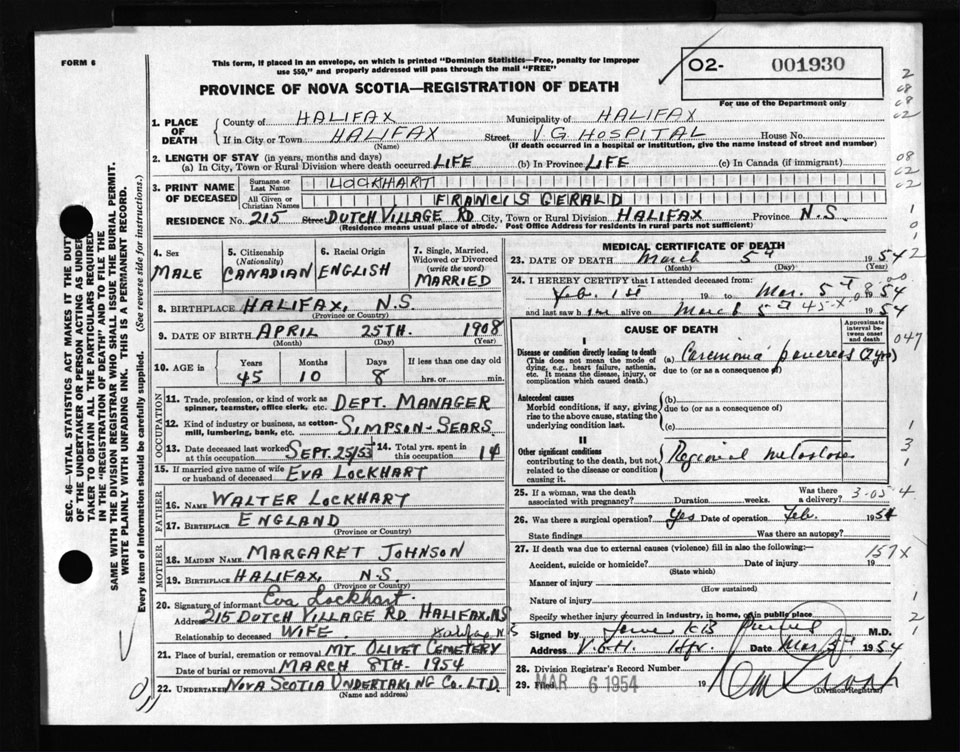 FORM 6
This form, if placed in an envelope, on which is printed "Dominion Statistics—Free, penalty for improper
use $50," and properly addressed will pass through the mail "FREE"
O2- 001930
For use of the Department only
PROVINCE OF NOVA SCOTIA—REGISTRATION OF DEATH
1. PLACE OF DEATH
County of HALIFAX Municipality of HALIFAX
If in City or Town HALIFAX Street V.G. HOSPITAL House No.
(Name) (If death occurred in a hospital or institution, give the name instead of street and number)
2. LENGTH OF STAY (in years, months and days)
(a) In City, Town or Rural Division where death occurred LIFE (b) In Province LIFE (c) In Canada (if immigrant)
3. PRINT NAME OF DECEASED
Surname or Last Name LOCKHART
All Given or Christian Names FRANCIS GERALD
RESIDENCE No. 215 Street DUTCH VILLAGE RD City, Town or Rural Division HALIFAX Province N.S.
(Residence means usual place of abode. Post Office Address for residents in rural parts not sufficient)
4. Sex MALE
5. Citizenship (Nationality) CANADIAN
6. Racial Origin ENGLISH
7. Single, Married, Widowed or Divorced (write the word) MARRIED
8. BIRTHPLACE HALIFAX, N.S.
(Province or Country)
9. DATE OF BIRTH APRIL 25TH. 1908
(Month) (Day) (Year)
10. AGE in Years 45 Months 10 Days 8 If less than one day old hrs. or min.
OCCUPATION
11. Trade, profession, or kind of work as spinner, teamster, office clerk, etc. DEPT. MANAGER
12. Kind of industry or business, as cotton-mill, lumbering, bank, etc. SIMPSON-SEARS
13. Date deceased last worked at this occupation SEPT. 25/53
14. Total yrs. spent in this occupation 14
15. If married give name of wife or husband of deceased EVA LOCKHART
FATHER
16. NAME WALTER LOCKHART
17. BIRTHPLACE ENGLAND
(Province or Country)
MOTHER
18. MAIDEN NAME MARGARET JOHNSON
19. BIRTHPLACE HALIFAX, N.S.
(Province or Country)
20. Signature of informant Eva Lockhart.
Address 215 DUTCH VILLAGE RD. HALIFAX, N.S
Relationship to deceased WIFE Halifax N.S
21. Place of burial, cremation or removal MT. OLIVET CEMETERY
Date of burial or removal MARCH 8TH. 1954
22. UNDERTAKER NOVA SCOTIA UNDERTAKING CO. LTD.
(Name and address)
MEDICAL CERTIFICATE OF DEATH
23. DATE OF DEATH March 5th 1954
(Month) (Day) (Year)
24. I HEREBY CERTIFY that I attended deceased from:
Feb. 1st 19 to Mar. 5th 1954
and last saw him alive on March 5th 1954
CAUSE OF DEATH
Approximate interval between onset and death
I
Disease or condition directly leading to death
(This does not mean the mode of dying, e.g., heart failure, asthenia, etc. It means the disease, injury, or complication which caused death.)
(a) Carcinoma pancreas
due to (or as a consequence of)
Antecedent causes
Morbid conditions, if any, giving rise to the above cause, stating the underlying condition last.
(b)
due to (or as a consequence of)
(c)
II
Other significant conditions
contributing to the death, but not related to the disease or condition causing it.
Regional metastases
25. If a woman, was the death associated with pregnancy? Duration weeks. Was there a delivery?
26. Was there a surgical operation? Yes Date of operation Feb. 1954
State findings Was there an autopsy?
27. If death was due to external causes (violence) fill in also the following:—
Accident, suicide or homicide? Date of injury 19
(State which)
Manner of injury
(How sustained)
Nature of injury
Specify whether injury occurred in industry, in home, or in public place
Signed by M.D.
Address V.G.H. Hfx. Date Mar 1954
28. Division Registrar's Record Number
29. Filed MAR 6 1954 19
(Division Registrar)
SEC. 46—VITAL STATISTICS ACT MAKES IT THE DUTY
OF THE UNDERTAKER OR PERSON ACTING AS UNDERTAKER
TO OBTAIN ALL THE PARTICULARS REQUIRED
IN THE "REGISTRATION OF DEATH" AND TO FILE THE
SAME WITH THE DIVISION REGISTRAR WHO SHALL ISSUE THE BURIAL PERMIT.
WRITE PLAINLY WITH UNFADING INK. THIS IS A PERMANENT RECORD.
Every item of Information should be carefully supplied. (See reverse side for instructions.)
2
08
08
02
08
02
02
1
0
1
2
047
1
3
1
3-05 4
157X
1
2
1